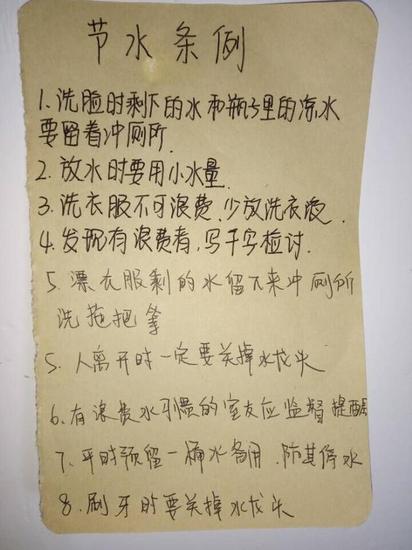 节水条例
1.洗脸时剩下的水和瓶子里的凉水
要留着冲厕所
2.放水时要用小水量.
3.洗衣服不可浪费.少放洗衣液.
4.发现有浪费者,写千字检讨.
5.漂衣服剩的水留下来冲厕所
洗拖把等
5.人离开时一定要关掉水龙头
6.有浪费水习惯的室友应监督提醒
7.平时预留一桶水备用.防其停水
8.刷牙时要关掉水龙头